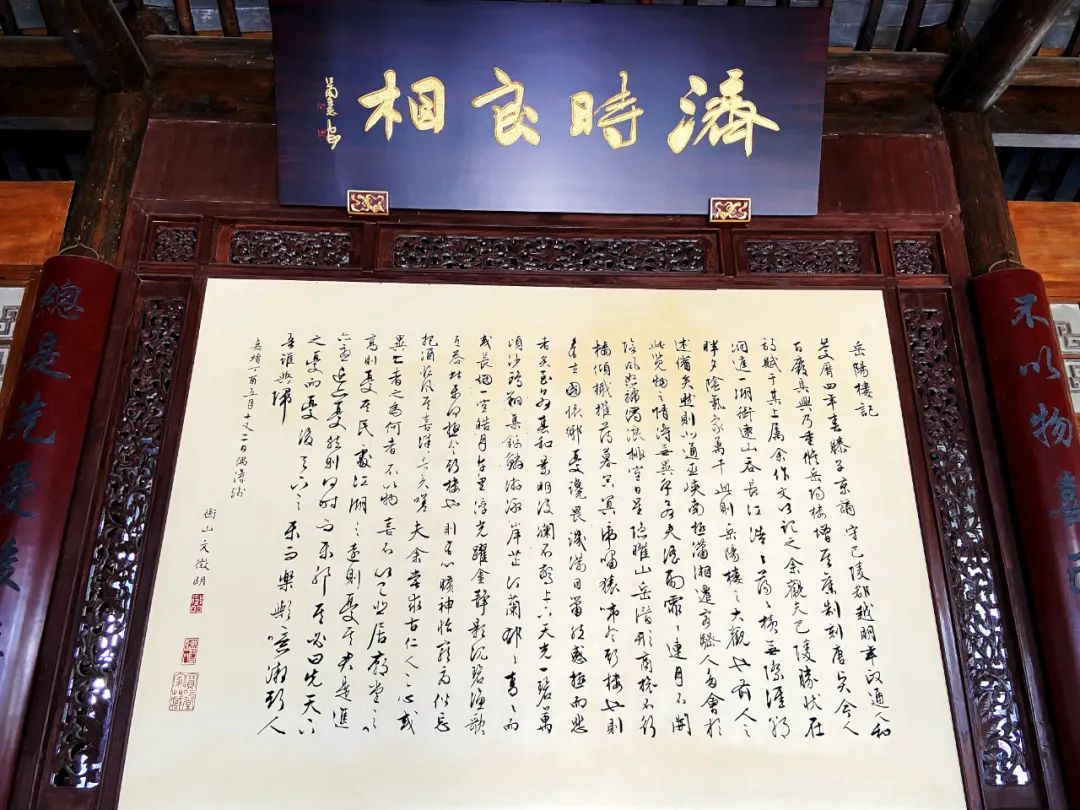 濟時良相
不以物喜己
岳陽樓記
慶曆四年春滕子京謫守巴陵郡越明年政通人和
百廢具興乃重修岳陽樓增其舊制刻唐賢今人
詩賦于其上屬余作文以記之余觀夫巴陵勝狀在
洞庭一湖銜遠山吞長江浩〻蕩〻橫無際涯朝
暉夕陰氣象萬千此則岳陽樓之大觀也前人之
述備矣然則北通巫峽南極瀟湘遷客騷人多會於
此覽物之情得無異乎若夫淫雨霏〻連月不開
陰風怒號濁浪排空日星隱曜山岳潛形商旅不行
檣傾楫摧薄暮冥〻虎嘯猿啼登斯樓也則
有去國懷鄉憂讒畏譏滿目蕭然感極而悲
者矣至若春和景明波瀾不驚上下天光一碧萬
頃沙鷗翔集錦鱗游泳岸芷汀蘭郁〻青〻而
或長烟一空皓月千里浮光躍金靜影沉璧漁歌
互答此樂何極登斯樓也則有心曠神怡寵辱偕忘
把酒臨風其喜洋〻者矣嗟夫余嘗求古仁人之心或
異二者之為何者不以物喜不以己悲居廟堂之
高則憂其民處江湖之遠則憂其君是進
亦憂退亦憂然則何時而樂耶其必曰先天下
之憂而憂後天下之樂而樂歟噫微斯人
吾誰與歸
嘉靖丁酉五月十又二日偶
衡山文徵明
總是先憂後